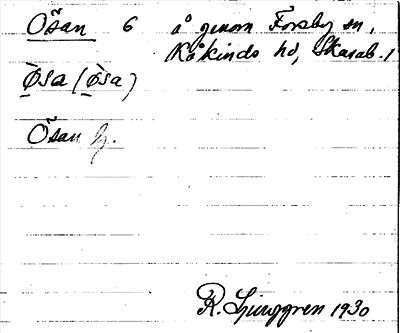 Ösan 6 å genom Forsby sn,
Kåkinds hd, Skarab. l
Ø̀sa (ø̀sa)
Ösan
R. Ljunggren 1930